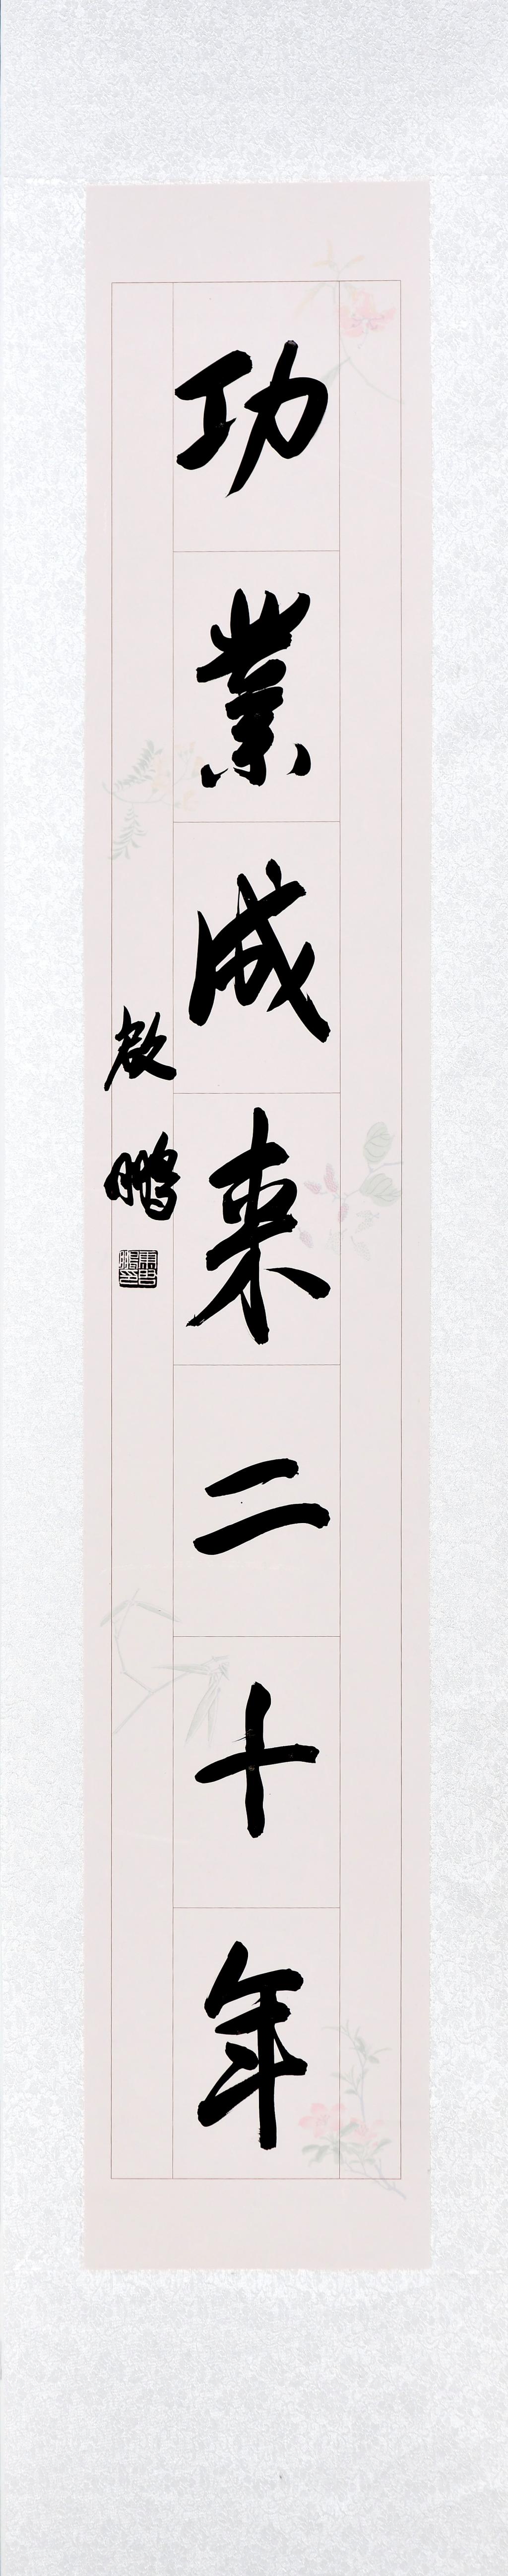 功業成來二十年
啟鵬